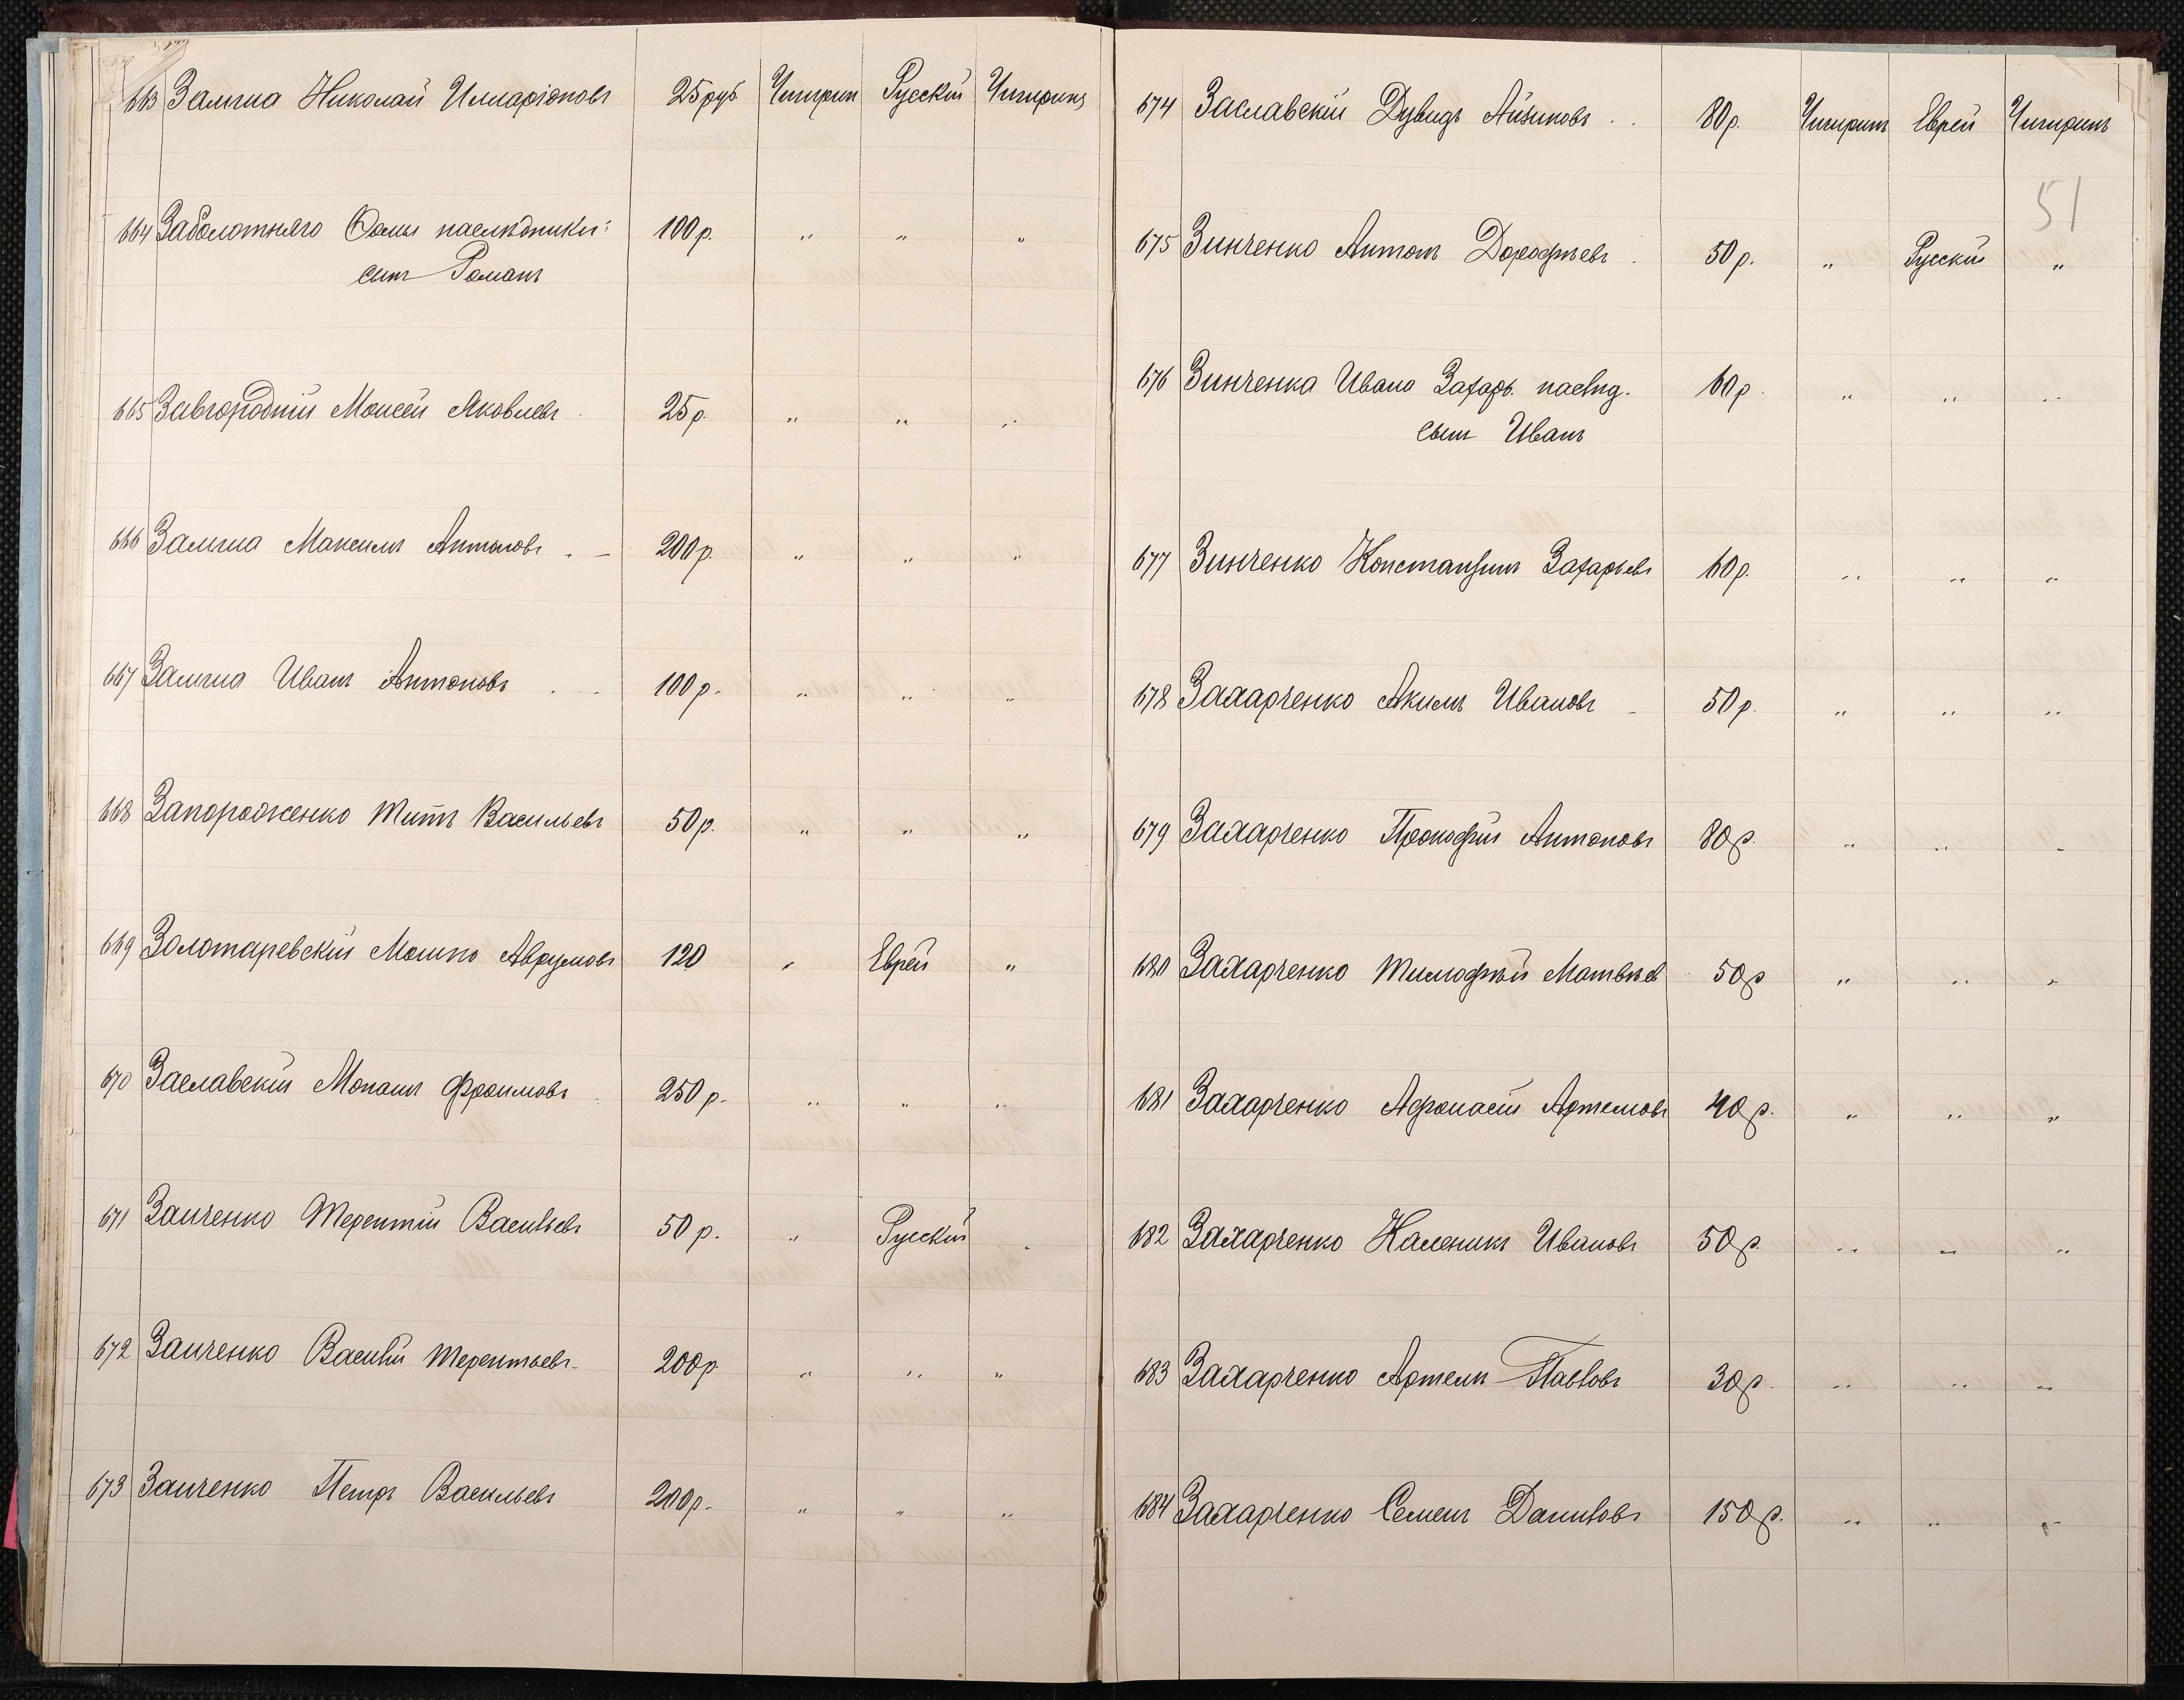 663 Залыгиа Николай Илларіоновъ 25 руб Чигирин Русскій Чигиринъ
664 Заболотнаго Ѳомы наслѣдники: 100 р. " " "
сынъ Романъ
665 Завгородній Моисей Яковлевъ 25 р. " " "
666 Максимъ Антоновъ 200 р. " " "
667 Иванъ Антоновъ 100 р. " " "
668 Запороженко Титъ Васильевъ 50 р. " " "
669 Золотаревскій Мошко Аврумовъ 120 " Еврей "
670 Заславскій Монашъ Фроимовъ 250 р. " " "
671 Заиченко Терентій Васильевъ 50 р. " Русскій "
672 Заиченко Василій Терентьевъ 200 р " " "
673 Заиченко Петръ Васильевъ 200 р. " " "
674 Заславскій Дувидъ Айзиковъ 80 р. Чигиринъ Еврей Чигиринъ
51
675 Зинченко Антонъ Дорофѣевъ 50 р. " Русскій "
676 Зинченка Ивана Захарь. наслѣд. 60 р. " " "
сынъ Иванъ
677 Зинченко Константинъ Захарьевъ 60 р. " " "
678 Захарченко Акимъ Ивановъ 50 р. " " "
679 Захарченко Прокофій Антоновъ 80 р. " " "
680 Захарченко Тимофѣй Матвѣев 50 р " " "
681 Захарченко Афонасій Артемовъ 40 р. " " "
682 Захарченко Каленикъ Ивановъ 50 р. " " "
683 Захарченко Артемъ Павловъ 30 р. " " "
684 Захарченко Семенъ Даниловъ 150 р. " " "